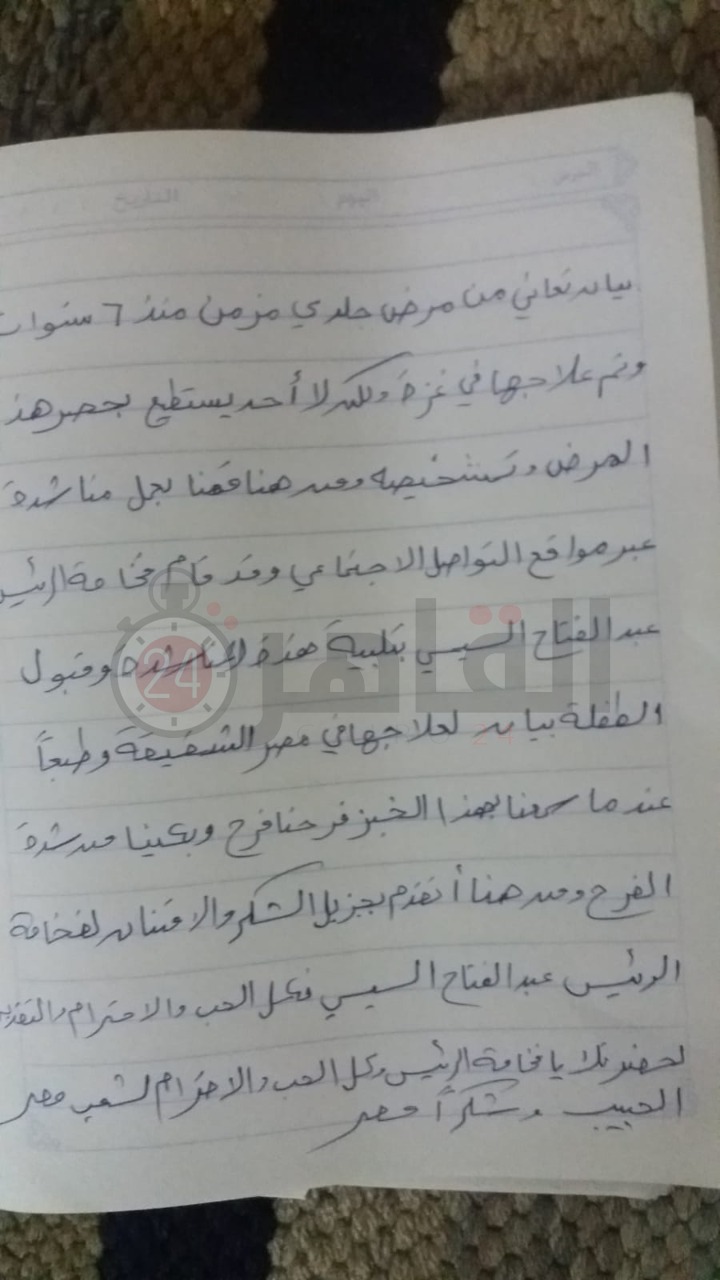 الدرس اليوم التاريخ
بيان تعاني من مرض جلدي مزمن منذ 6 سنوات
وتم علاجها في غزة ولكن لا أحد يستطيع بحصر هذ
المرض وتشخيصه ومن هنا قمنا بعمل مناشدة
عبر مواقع التواصل الاجتماعي وقد قام فخامة الرئيس
عبد الفتاح السيسي بتلبية هذة المناشدة وقبول
الطفلة بيان لعلاجها في مصر الشقيقة وطبعاً
عندما سمعنا بهذا الخبر فرحنا فرح وبكينا من شدة
الفرح ومن هنا أتقدم بجزيل الشكر والامتنان لفخامة
الرئيس عبد الفتاح السيسي فكل الحب والاحترام والتقدير
لحضرتك يا فخامة الرئيس وكل الحب والاحترام لشعب مصر
الحبيب وشكراً مصر
القاهرة 24